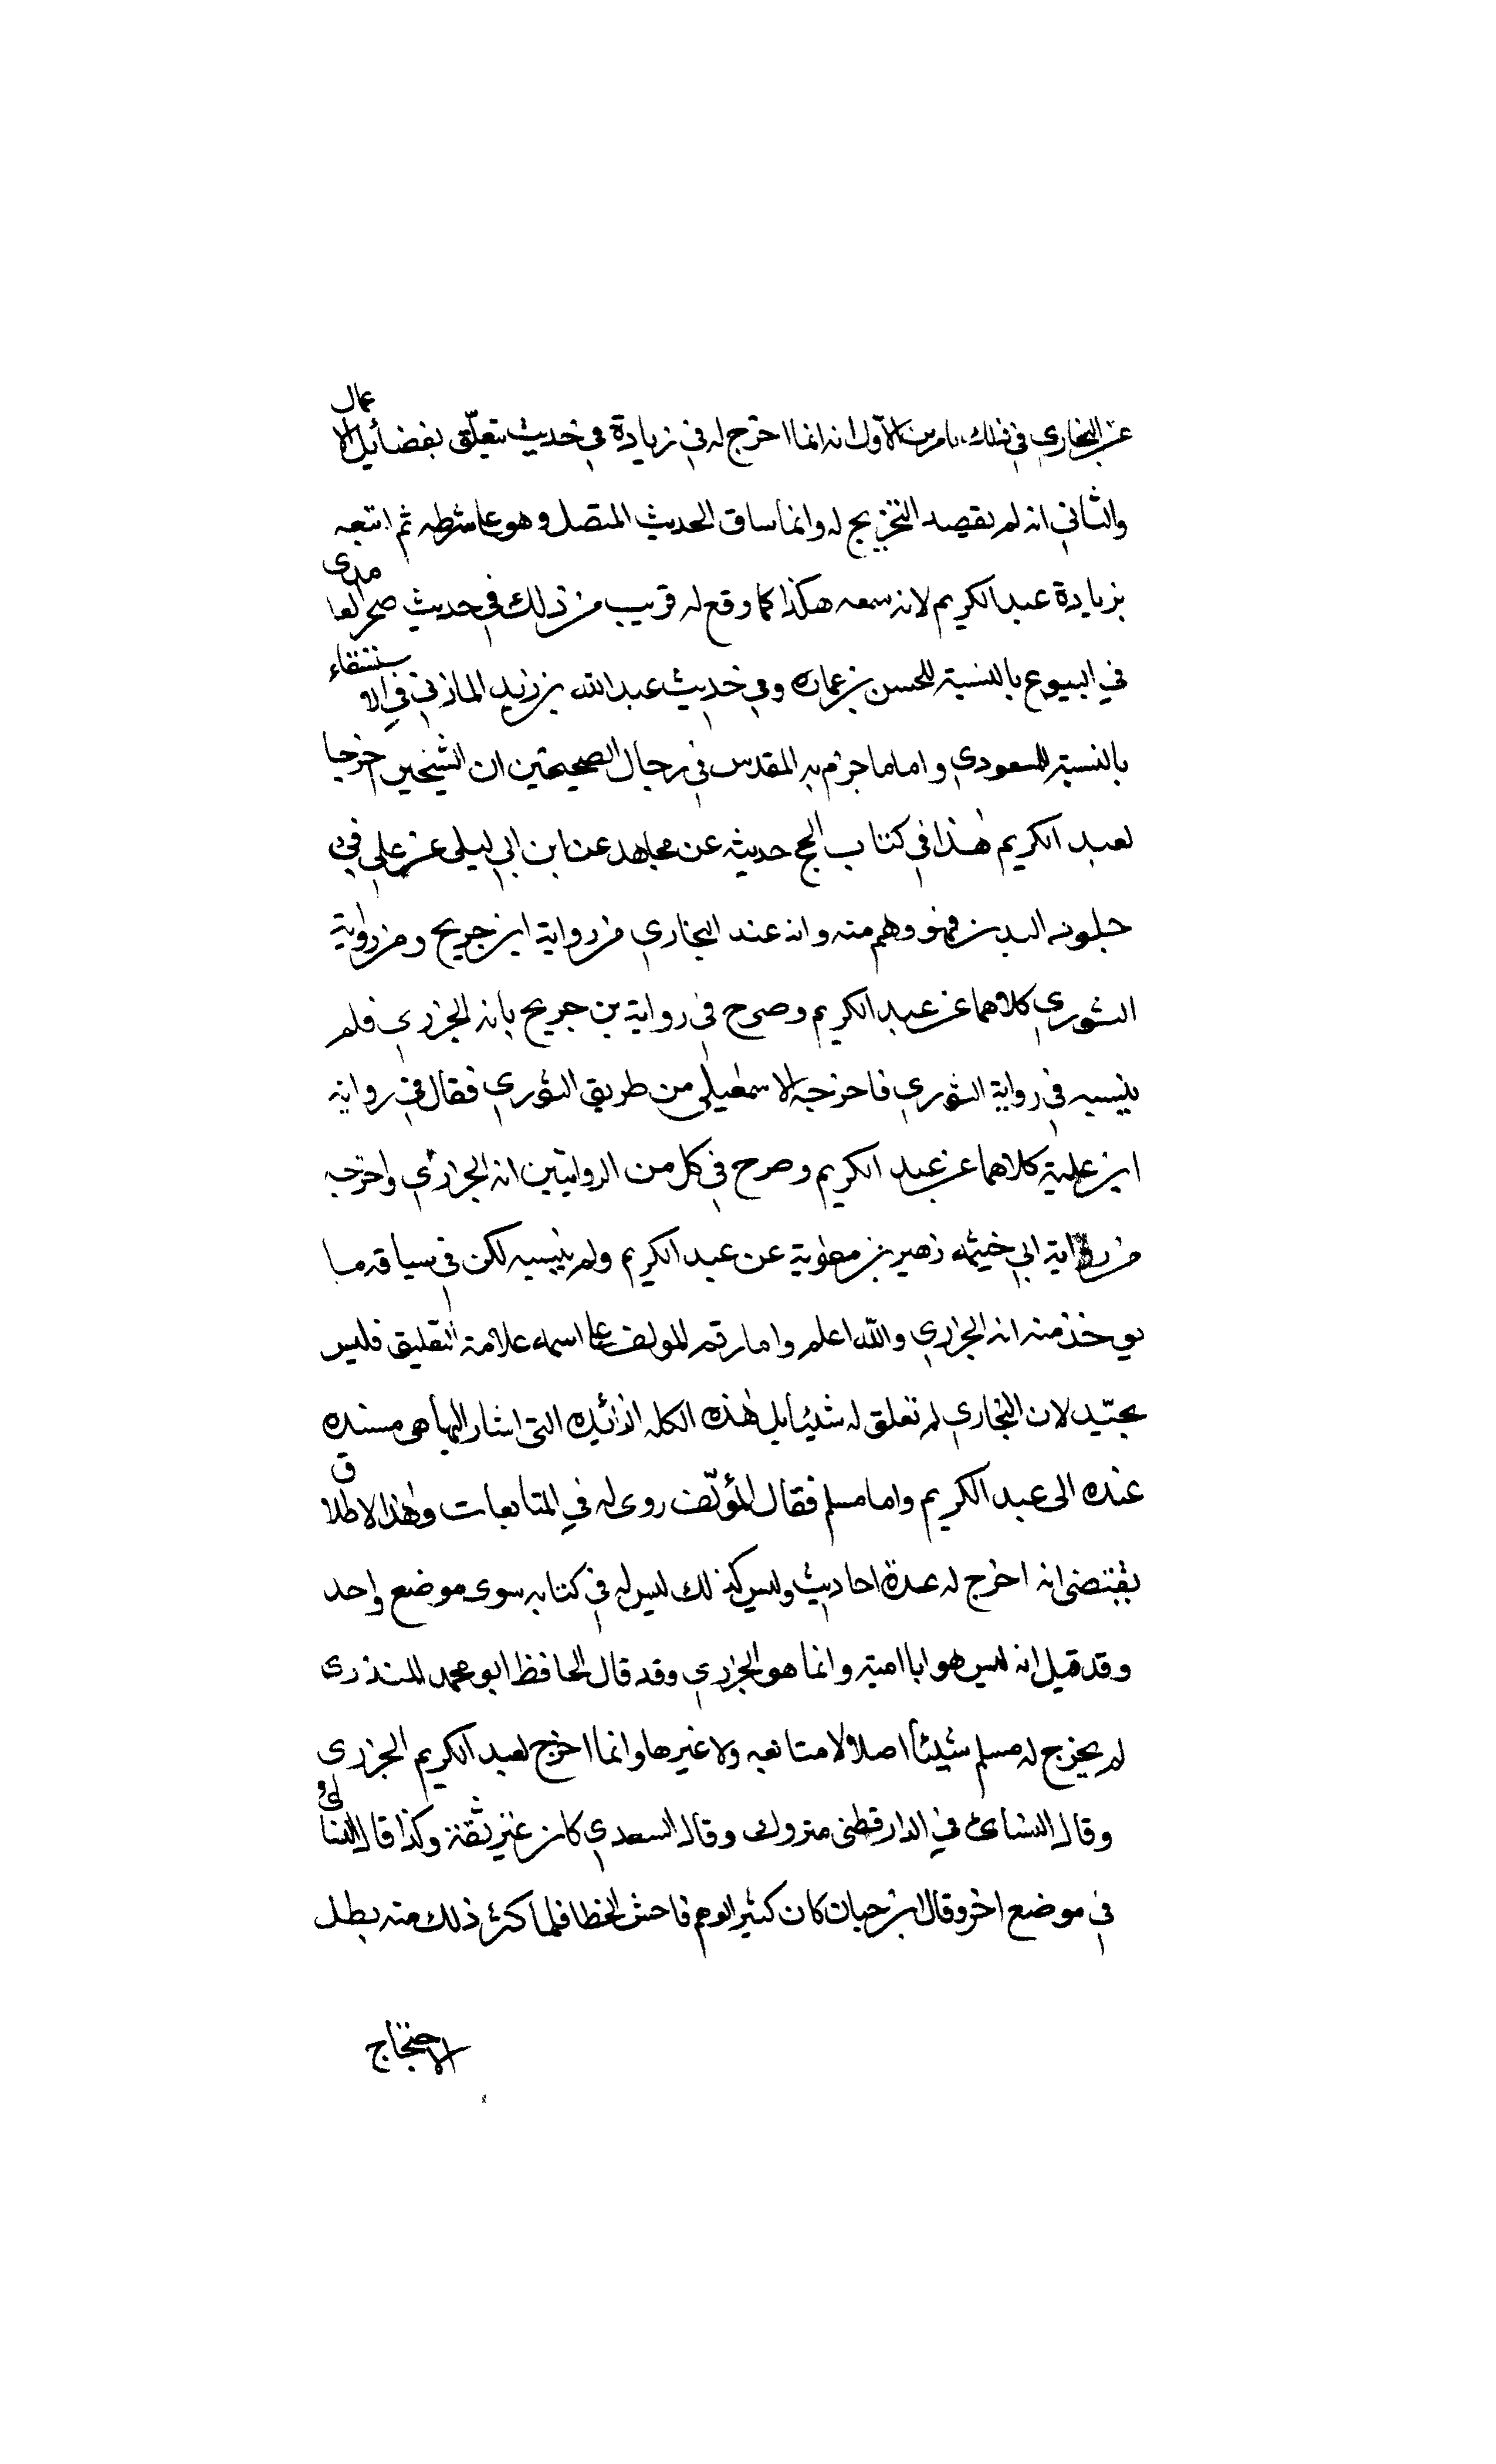 عن البخاري في ذلك بامرين الاول انه انما اخرج له في زيادة في حديث يتعلّق بفضائل الاعمال
والثاني انه لم يقصد التخريج له وانما ساق الحديث المتصل وهو على شرطه ثم اتبعه
بزيادة عبد الكريم لانه سمعه هكذا كما وقع له قريب من ذلك في حديث صخر الغامدى
في البيوع بالنسبة للحسن بن عمارة وفي حديث عبد الله بن زيد المازني في الاستسقاء
بالنسبة للمسعودي واما ما جزم به المقدس في رجال الصحيحين ان الشيخين اخرجا
لعبد الكريم هذا في كتاب الحج حديثه عن مجاهد عن ابن ابي ليلى عن علي في
جلود البدن فهو وهم منه وانه عند البخاري من رواية ابن جريج ومن رواية
الثوري كلاهما عن عبد الكريم وصرح في رواية بن جريج بانه الجزري فلم
ينسبه في رواية الثوري فاخرجه الاسمعيلي من طريق الثوري فقال في رواية
ابن علية كلاهما عن عبد الكريم وصرح في كل من الروايتين انه الجزري واخرجه
من رواية ابي خيثمه زهير بن معوية عن عبد الكريم ولم ينسبه لكن في سياقه ما
يوخذ منه انه الجزري والله اعلم واما رقم المولف على اسمه علامة التعليق فليس
بجيّد لان البخاري لم تعلق له شيئا بل هذه الكلمه الزائده التى اشار اليها هى مسنده
عنده الى عبد الكريم واما مسلم فقال المؤلّف روى له في المتابعات وهذا الاطلاق
يقتضى انه اخرج له عدة احاديث وليس كذلك ليس له في كتابه سوى موضع واحد
وقد قيل انه ليس هو ابا امية وانما هو الجزري وقد قال الحافظ ابو محمد المنذرى
لم يخرج له مسلم شيئا اصلا لا متابعه ولا غيرها وانما اخرج لعبد الكريم الجزرى
وقال النسائى في الدارقطنى متروك وقال السعدي كان غير ثقة وكذا قال النسائى
في موضع اخر وقال ابن حبان كان كثير الوهم فاحش الخطا فلما كثر ذلك منه بطل
الاحتجاج